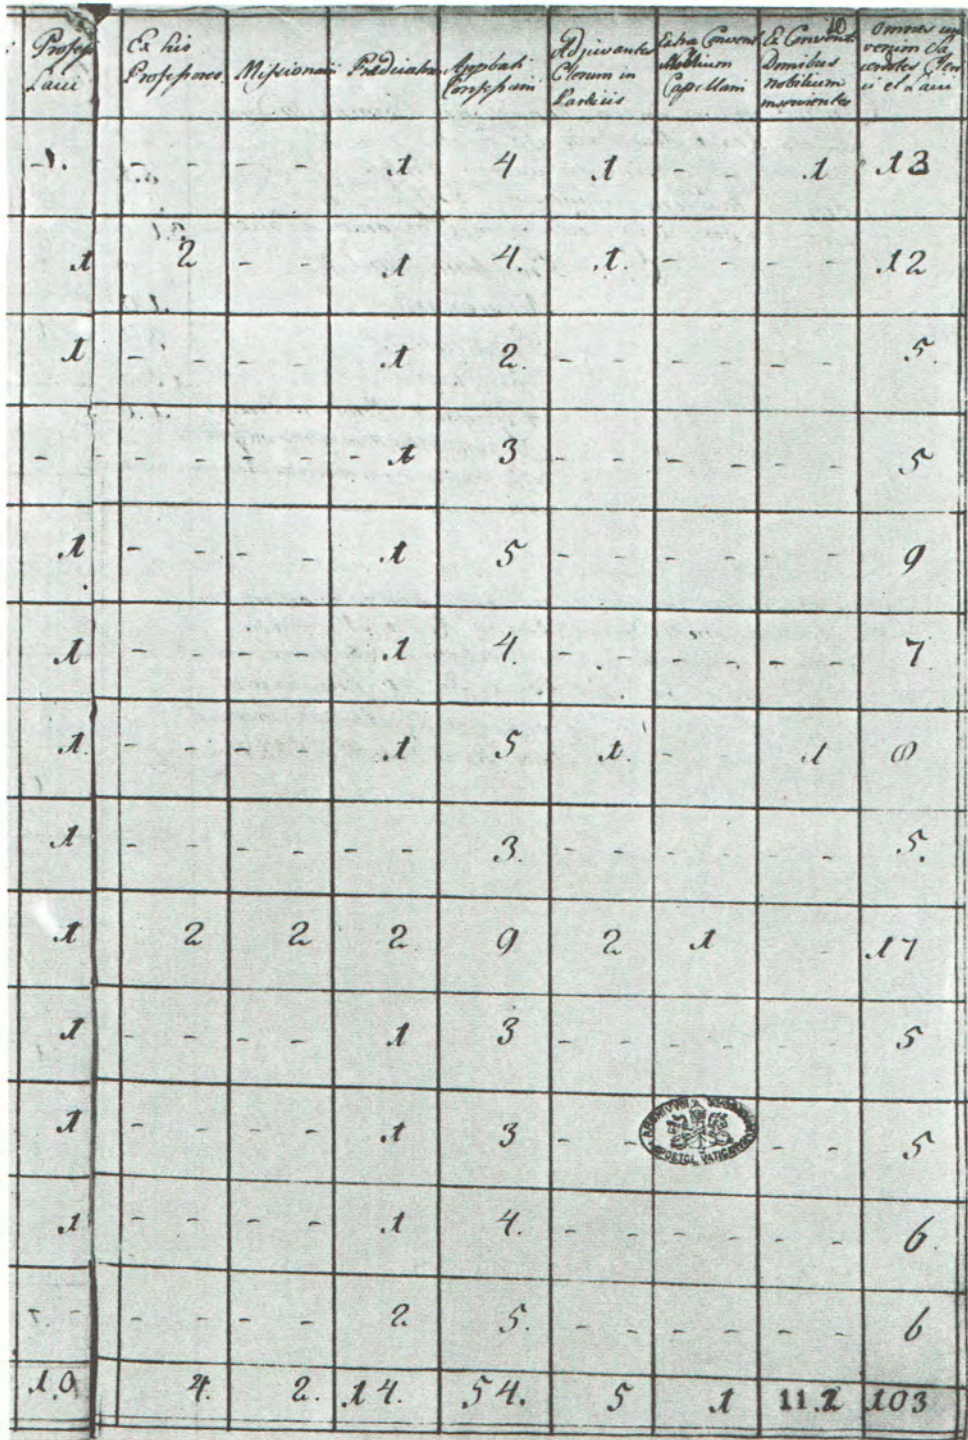 Professi Laici | Ex his Professores | Missionarii | Prædicatores | Approbati Confessarii | Adjuvantes Clerum in Parochiis | Extra Convent Nobilium Capellani | Ex Convent Domibus nobilium inservientes | Omnes universim Sacerdotes Clerici et Laici
10
1. | - - | - | 1 | 4 | 1 | - - | 1 | 13
1 | 2 | - - | 1 | 4. | 1. | - - | - - | 12
1 | - - | - - | 1 | 2. | - - | - - | - - | 5.
- | - - | - - | - 1 | 3 | - - | - - | - - | 5
1 | - - | - - | 1 | 5 | - - | - - | - - | 9
1 | - - | - - | 1 | 4. | - - | - - | - - | 7
1. | - - | - - | 1 | 5 | 1. | - - | 1 | 8
1 | - - | - - | - - | 3. | - - | - - | - - | 5.
1 | 2 | 2 | 2 | 9 | 2 | 1 | - | 17
1 | - - | - - | 1 | 3 | - - | - - | - - | 5
1 | - - | - - | 1 | 3 | - - | - - | 5
APOSTOL. VATICAN
1 | - - | - - | 1 | 4. | - - | - - | - - | 6.
- | - - | - - | 2 | 5. | - - | - - | - - | 6
10 | 4. | 2. | 14. | 54. | 5 | 1 | 11.2 | 103